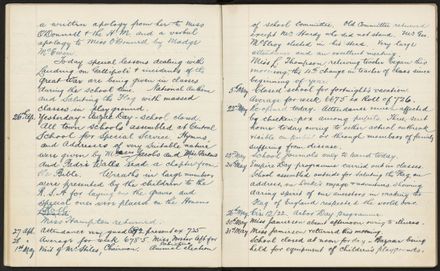 a written apology from her to Miss
O'Donnell & the H.M. and a verbal
apology to Miss O'Donnell by Madge
McEwan
Today special lessons dealing with
Landing on Gallipoli & incidents of the
Great War are being given in classes
during the school time. National Anthem
and Saluting the Flag with massed
classes in play ground.
Yesterday - Anzac Day - school closed.
All town schools assembled at Central
School for special Service. Hymns
and Addresses of very suitable nature
were given by
and Padre Walls read a chapter from
the Bible. Wreaths in large numbers
were presented by the children to the
R.S.A. for laying on the graves and
special ones were placed on the Honours
Board.
Miss Hampton returned.
27 Apl. Attendance very good 692 present ex 725
28 " Average for week 678.5.
Visit of Mr Stiles, Chairman. Annual election
of school committee. Old Committee returned
except Mr Hardy who did not stand. Mr Geo.
McElroy elected in his stead. Very large
attendance and an excellent meeting.
Miss L. Thompson, relieving teacher began this
morning, the 10th change in teachers of class since
beginning of year.
5th May Closed school for fortnight's vacation.
Average for week 667.5 ex Roll of 726.
School reopened today. Attendance much affected
by chicken pox among pupils. Three sent
home today owing to either actual outbreak
visible on face or through members of family
suffering from disease.
School Journals only to hand today.
Empire Day programme carried out in classes.
School assembled outside for Saluting the Flag an
address on
daring spirit of our ancestors in making the
Flag of England respected the world over.
Arbor Day programme.
Miss Jamieson absent afternoon owing to illness.
31st May Miss Jamieson returned this morning.
School closed at noon for day - Bazaar being
held for equipment of children's playgrounds.